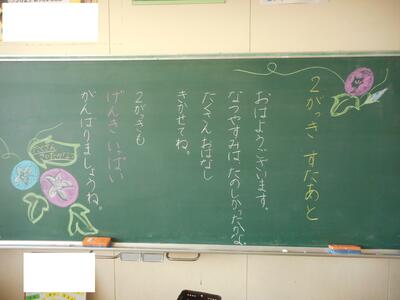 2がっき すたあと
おはようございます。
なつやすみは たのしかったかな。
たくさん おはなし
きかせてね。
2がっきも
げんき いっぱい
がんばりましょうね。